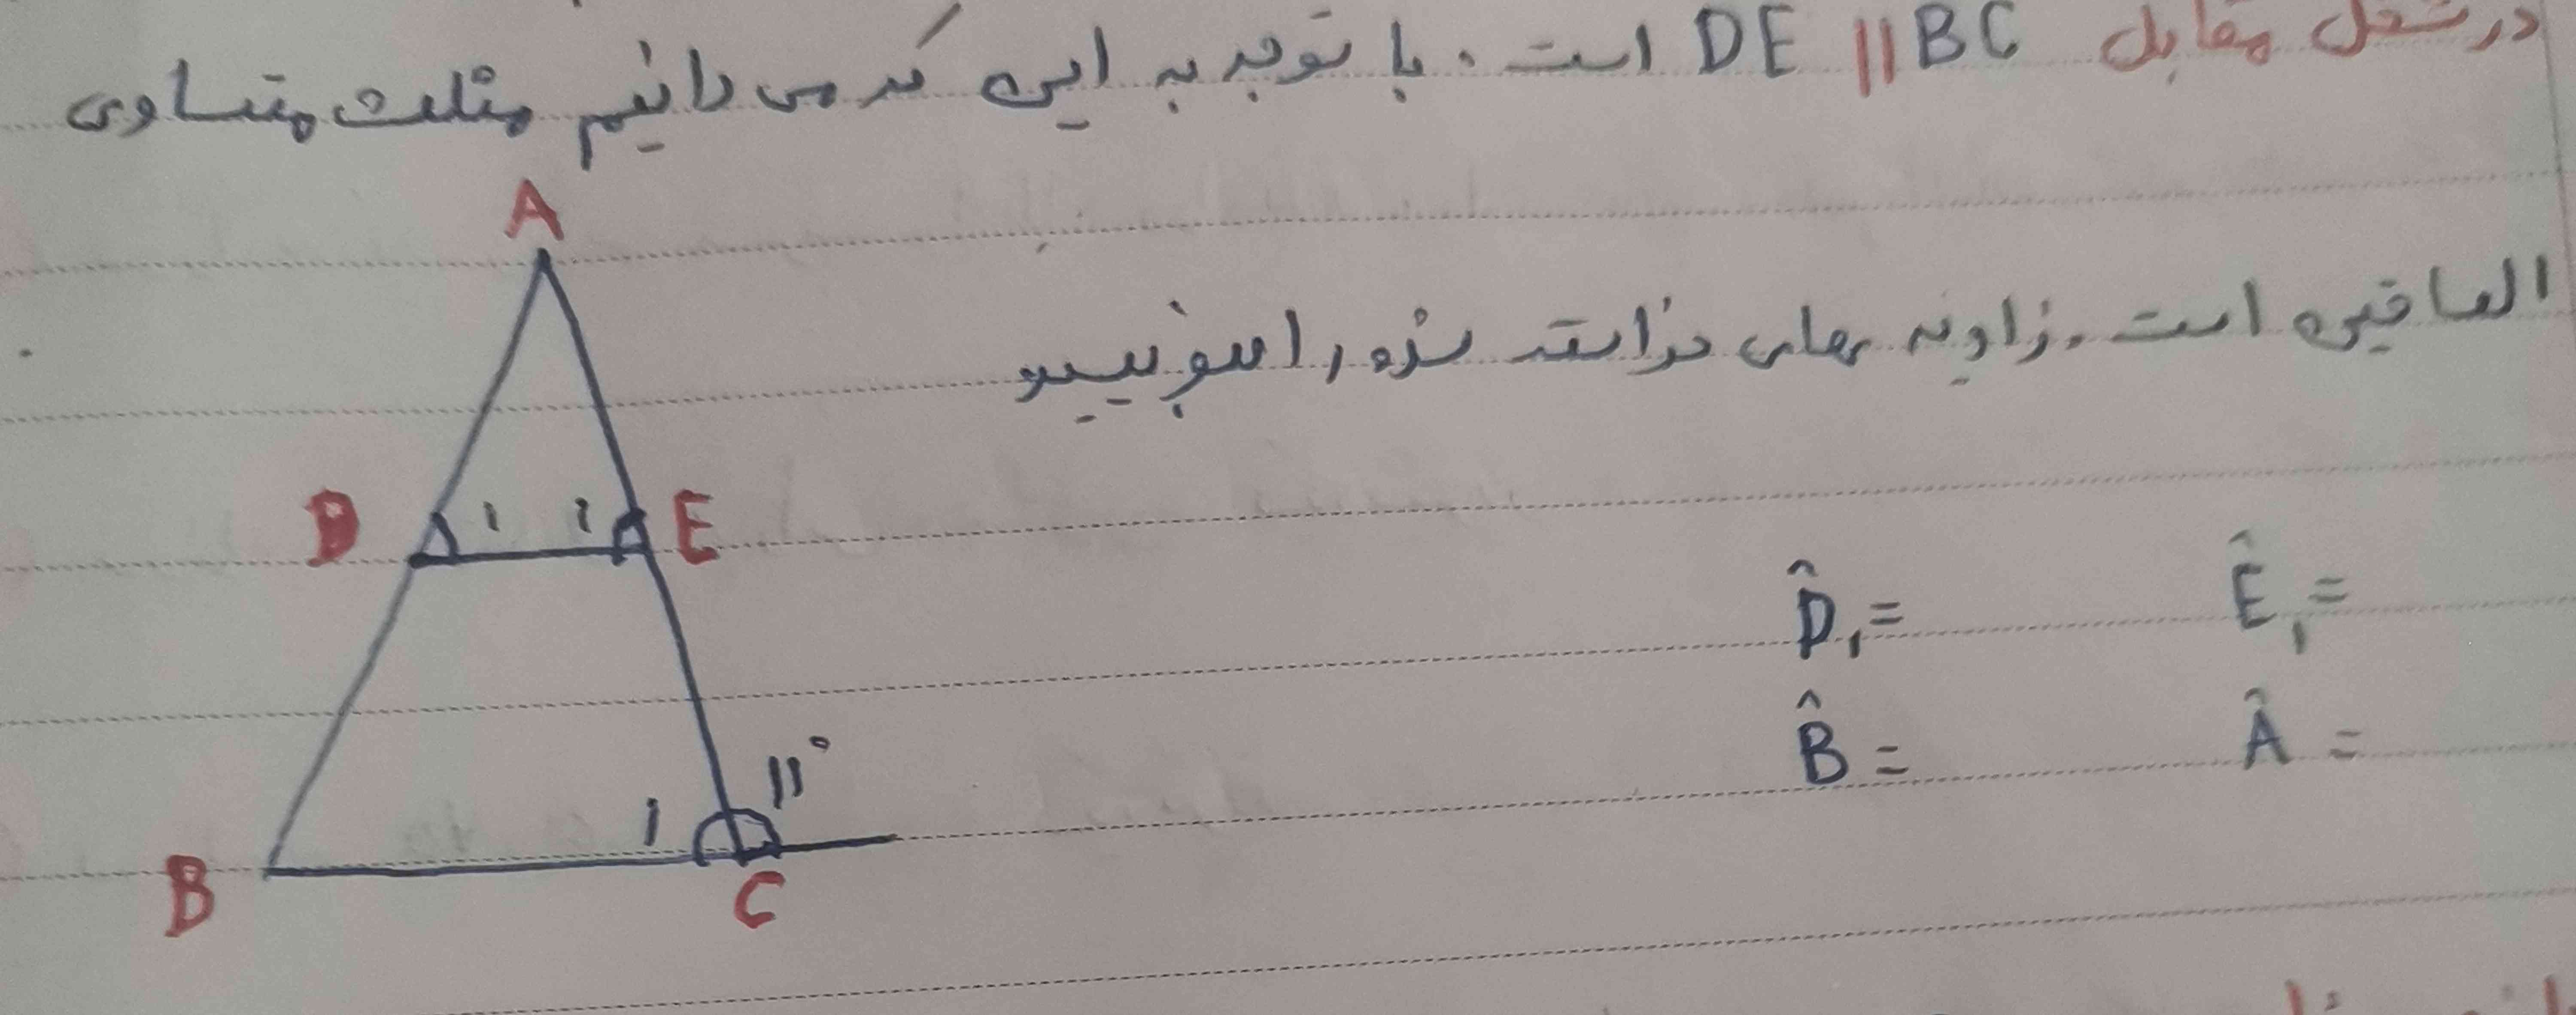 در شکل مقابل DE || BC است. با توجه به این که می دانیم مثلث متساوی
الساقین است. زاویه های خواسته شده را بنویسید
A
D ۱ ۱ E
۱ ۱۱°
B C
D̂₁= Ê₁=
B̂ = Â =